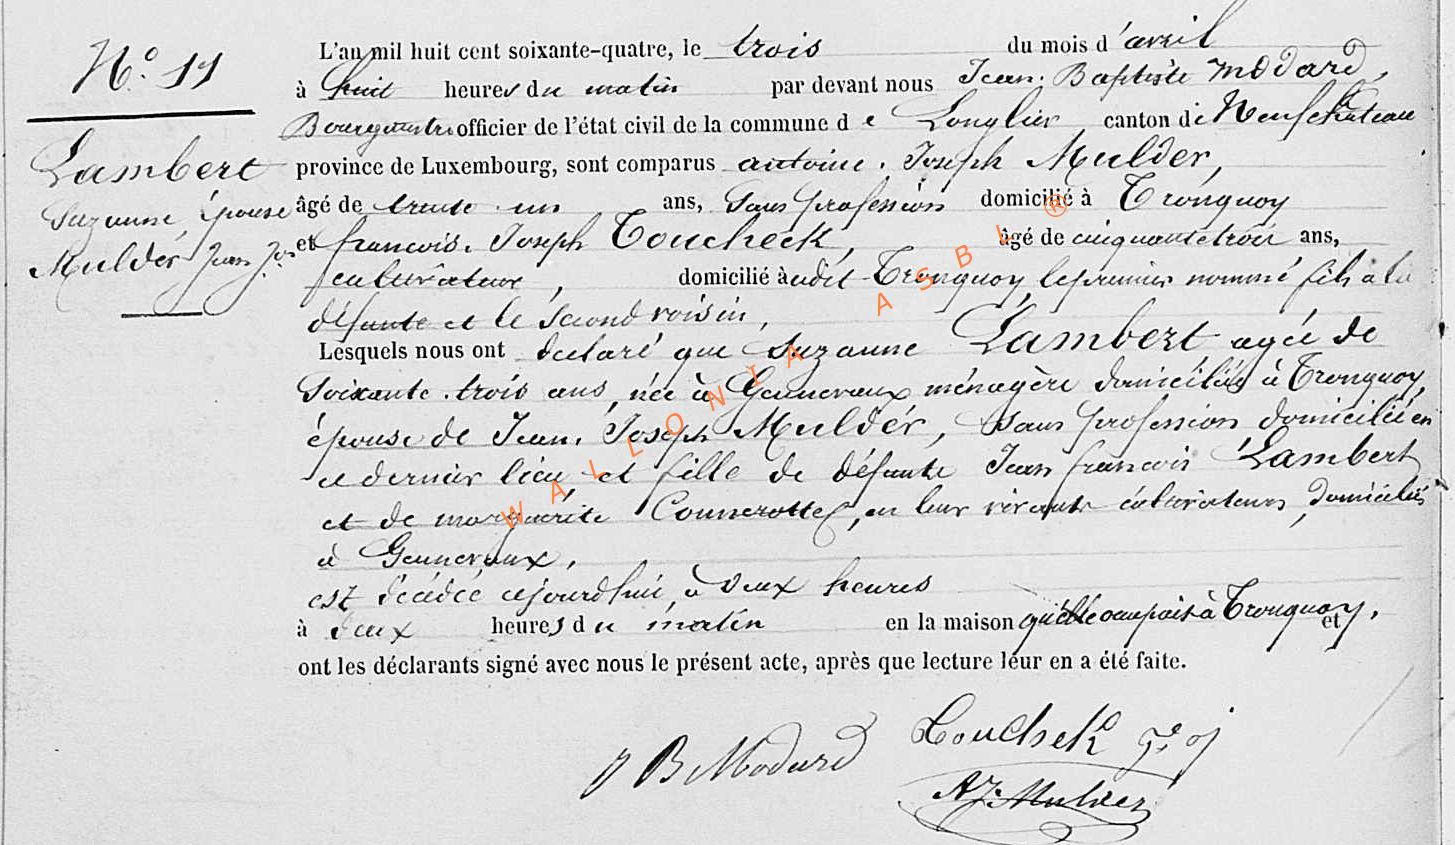 N.o 11
Lambert
Suzanne, épouse
Muldér Jean Jos
L'an mil huit cent soixante-quatre, le trois du mois d'avril
à huit heures du matin par devant nous Jean. Baptiste Modard,
Bourgmestre officier de l'état civil de la commune de Longlier canton de Neufchateau
province de Luxembourg, sont comparus antoine. Joseph Mulder,
âgé de trente un ans, Sans profession domicilié à Tronquoy
et francois. Joseph Toucheck, âgé de cinquante trois ans,
cultivateur, domicilié audit Tronquoy, le premier nommé fils à la
défunte et le second voisin,
Lesquels nous ont declaré que Suzanne Lambert agée de
Soixante. trois ans, née à Gennevaux ménagère domiciliée à Tronquoy,
épouse de Jean. Joseph Muldér, Sans profession domicilié en
ce dernier lieu, et fille de défunts Jean francois Lambert
et de marguerite Connerotte, en leur vivants cultivateurs, domiciliés
à Gennevaux,
est décédée aujourd'hui, à deux heures
à deux heures du matin en la maison qu'elle occupait à Tronquoy, et
ont les déclarants signé avec nous le présent acte, après que lecture leur en a été faite.
J B Modard
Toucheck
A J. Mulder
WALLONIA ASBL ®